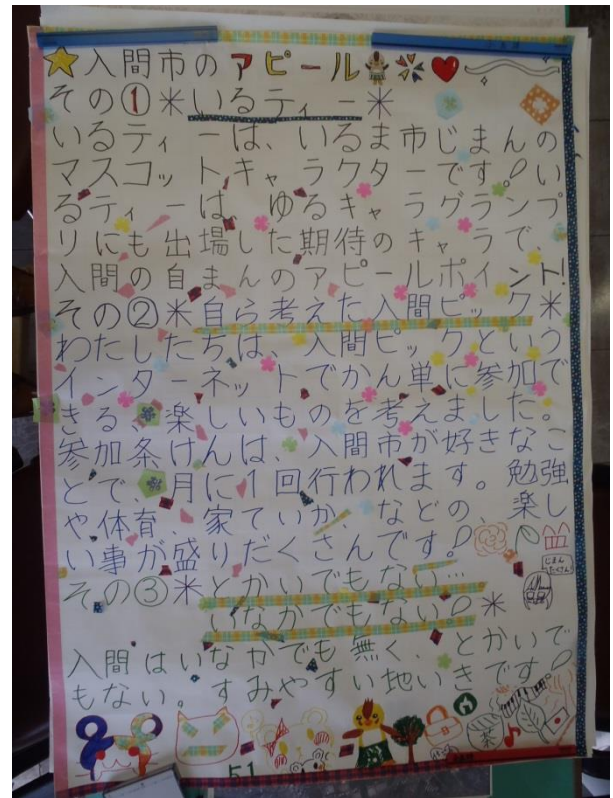 入間市のアピール
その①＊いるティー＊
いるティーは、いるま市じまんの
マスコットキャラクターです！い
るティーは、ゆるキャラグランプ
リにも出場した期待のキャラで、
入間の自まんのアピールポイント!
その②＊自ら考えた入間ピック＊
わたしたちは、入間ピックという
インターネットでかん単に参加で
きる、楽しいものを考えました。
参加条けんは、入間市が好きなこ
とで、月に1回行われます。勉強
や体育、家ていか、などの楽し
い事が盛りだくさんです！
じまん
たくさん
その③＊とかいでもない…
いなかでもない！＊
入間はいなかでも無く、とかいで
もない。すみやすい地いきです！
茶
51